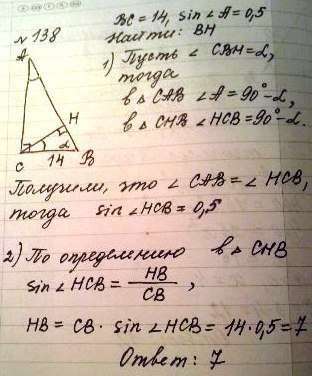 BC = 14, sin ∠A = 0,5
№ 138 Найти: BH
A
1) Пусть ∠ CBH = α,
тогда
в △ CAB ∠A = 90° - α,
H
в △ CHB ∠ HCB = 90° - α.
α
C 14 B
Получили, что ∠ CAB = ∠ HCB,
тогда sin ∠HCB = 0,5
2) По определению в △ CHB
sin ∠ HCB = HB / CB ,
HB = CB · sin ∠HCB = 14 · 0,5 = 7
Ответ: 7